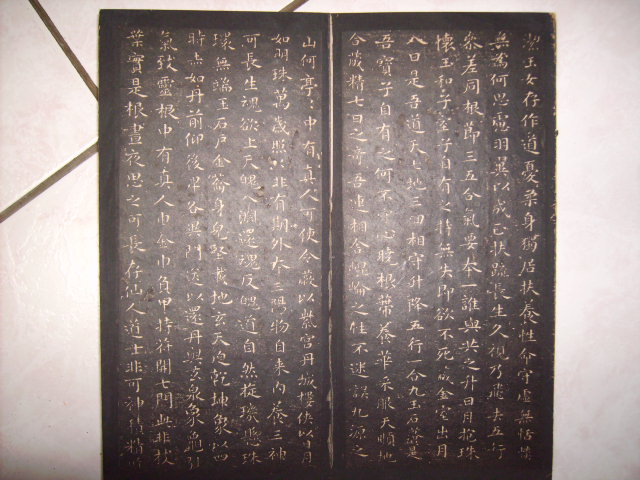 潔玉女存作道憂柔身獨居扶養性命守虛無恬淡
無為何思慮羽翼以成正扶疏長生久視乃飛去五行
參差同根節三五合氣要本一誰與共之升日月抱珠
懷玉和子室子自有之持無失即欲不死藏金室出月
入日是吾道天七地三回相守升降五行一合九玉石落落是
吾寶子自有之何不守心曉根蒂養華采服天順地
合藏精七日之奇吾連相合崑崙之性不迷誤九源之
山何亭〻中有真人可使令蔽以紫宮丹城樓俠以日月
如明珠萬歲照〻非有期外本三陽物自來內養三神
可長生魂欲上天魄入淵還魂反魄道自然旋璣懸珠
環無端玉石戶金籥身貌堅載地玄天迫乾坤象以四
時赤如丹前仰後卑各異門送以還丹與玄泉象龜引
氣致靈根中有真人巾金巾負甲持符開七門此非枝
葉實是根晝夜思之可長存仙人道士非可神積精所